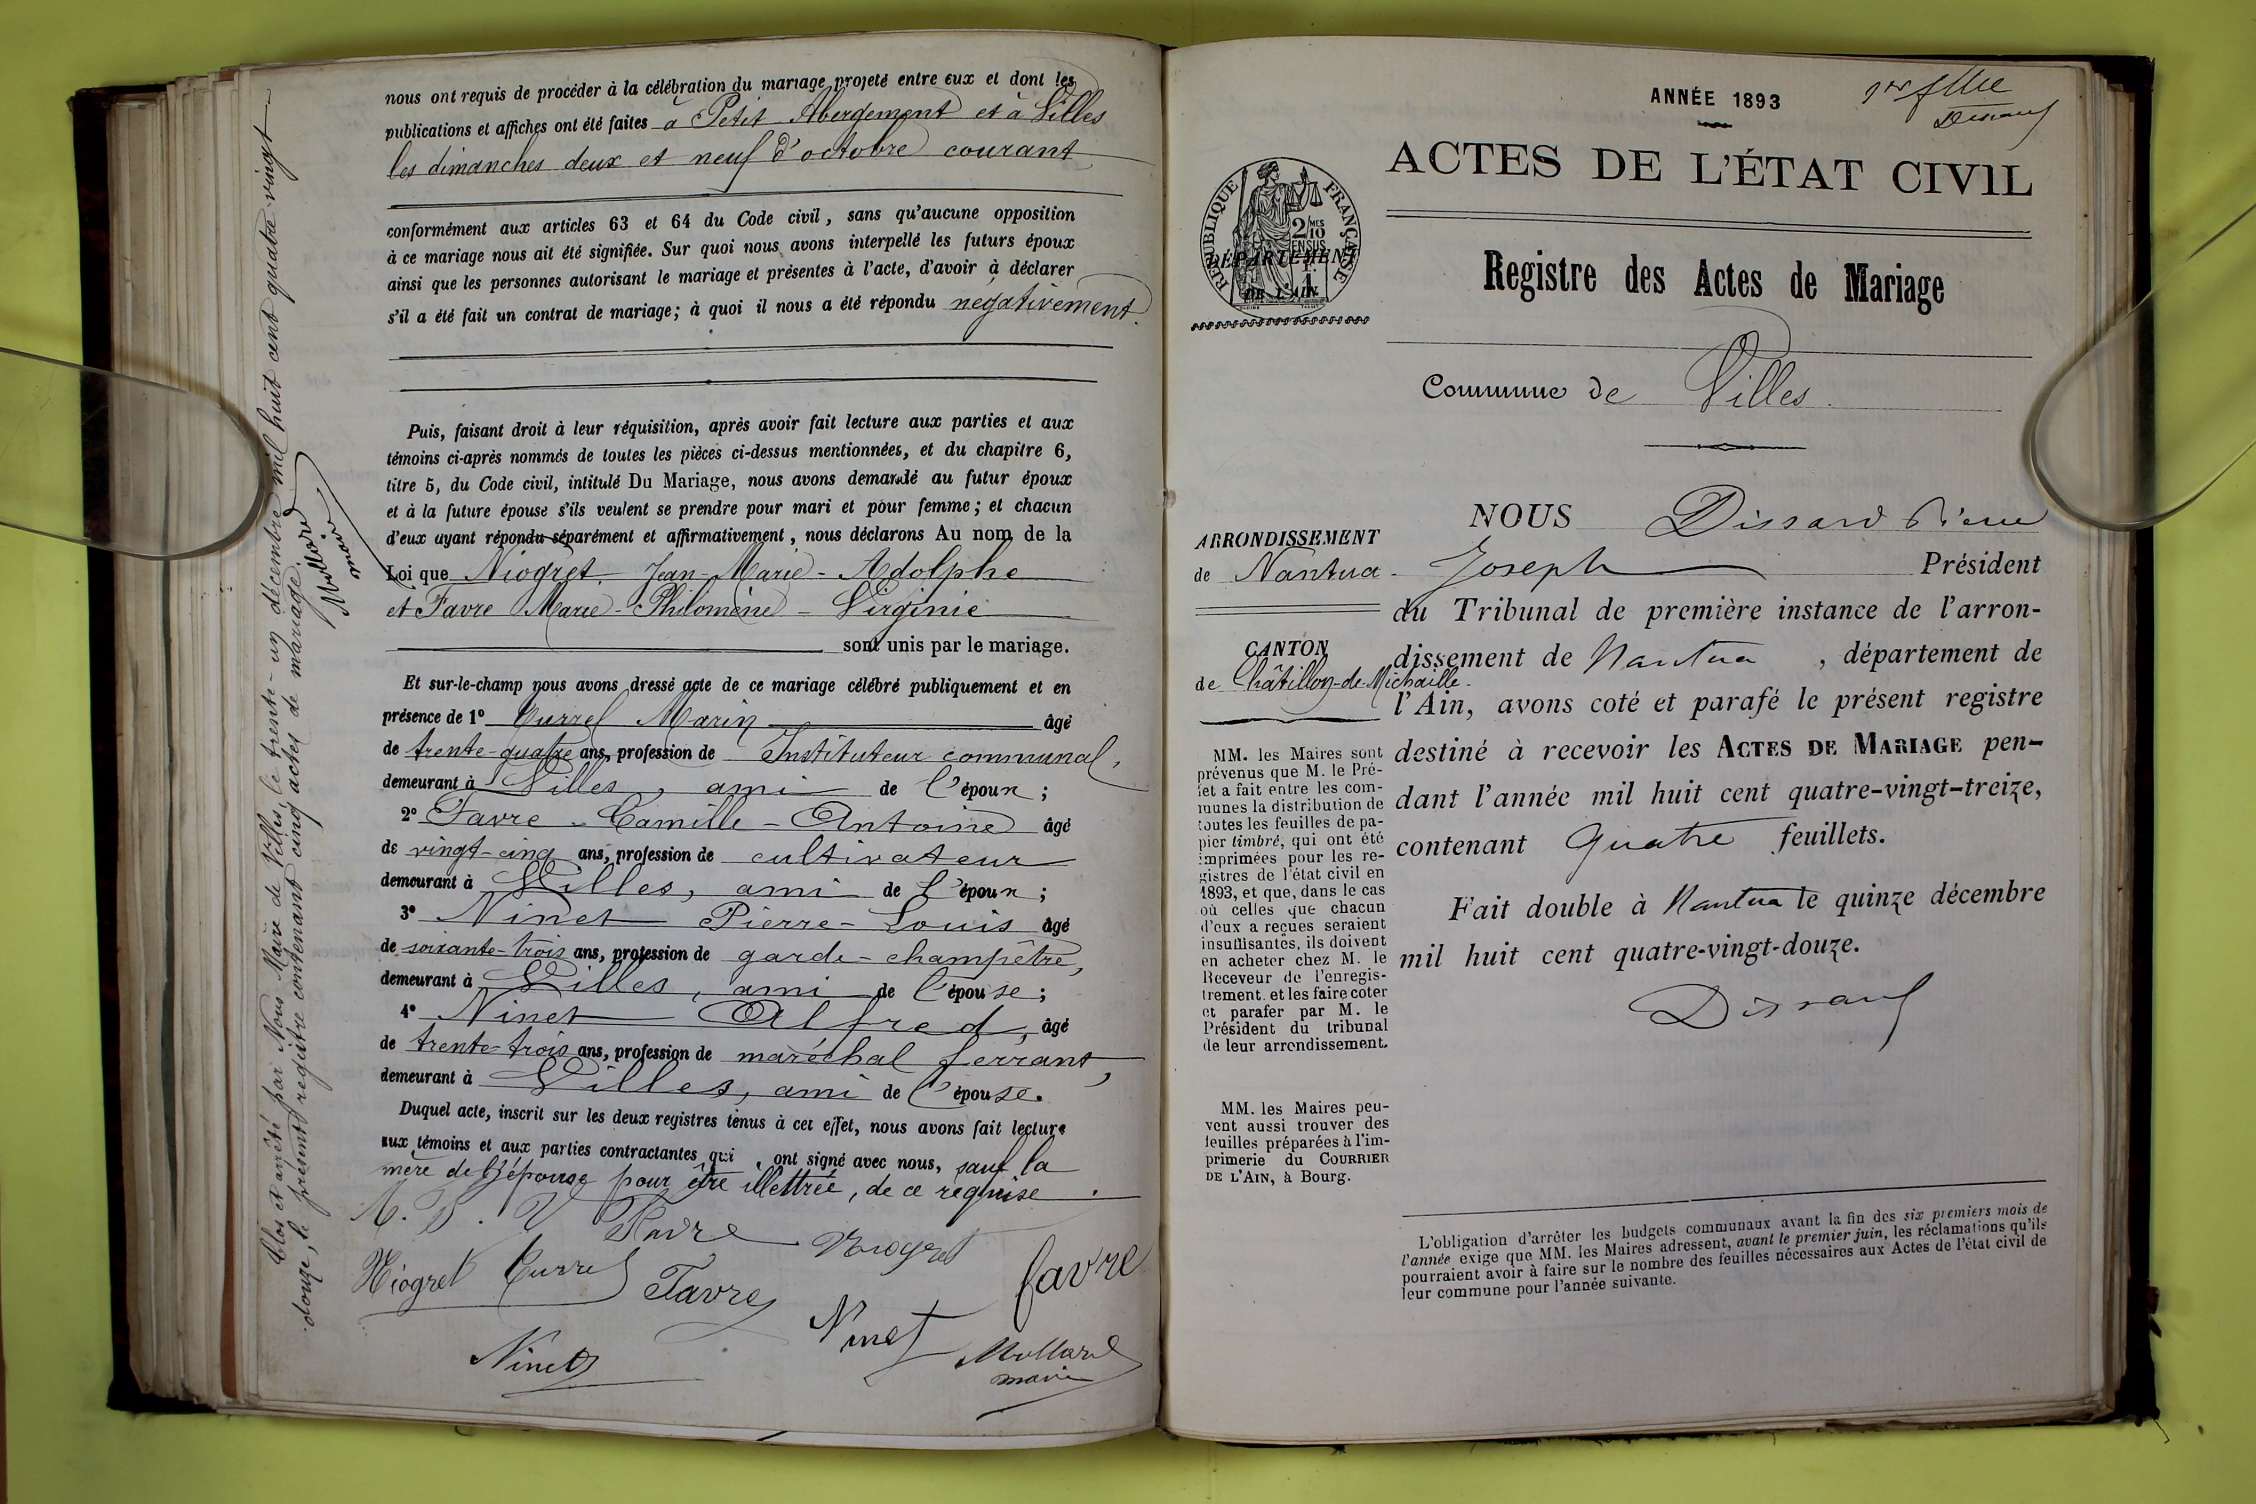 nous ont requis de procéder à la célébration du mariage projeté entre eux et dont les
publications et affiches ont été faites à Petit Abergement et à Villes
les dimanches deux et neuf d'octobre courant
conformément aux articles 63 et 64 du Code civil, sans qu'aucune opposition
à ce mariage nous ait été signifiée. Sur quoi nous avons interpellé les futurs époux
ainsi que les personnes autorisant le mariage et présentes à l'acte, d'avoir à déclarer
s'il a été fait un contrat de mariage; à quoi il nous a été répondu négativement.
Puis, faisant droit à leur réquisition, après avoir fait lecture aux parties et aux
témoins ci-après nommés de toutes les pièces ci-dessus mentionnées, et du chapitre 6,
titre 5, du Code civil, intitulé Du Mariage, nous avons demandé au futur époux
et à la future épouse s'ils veulent se prendre pour mari et pour femme; et chacun
d'eux ayant répondu séparément et affirmativement, nous déclarons Au nom de la
Loi que Niogret Jean-Marie-Adolphe
et Favre Marie-Philomène-Virginie
sont unis par le mariage.
Et sur-le-champ nous avons dressé acte de ce mariage célébré publiquement et en
présence de 1° Curret Marin âgé
de trente-quatre ans, profession de Instituteur communal,
demeurant à Villes, ami de l'époux;
2° Favre-Camille-Antoine âgé
de vingt-cinq ans, profession de cultivateur
demeurant à Villes, ami de l'époux;
3° Ninet Pierre-Louis âgé
de soixante-trois ans, profession de garde-champêtre,
demeurant à Villes, ami de l'épouse;
4° Ninet Alfred, âgé
de trente-trois ans, profession de maréchal ferrant,
demeurant à Villes, ami de l'épouse.
Duquel acte, inscrit sur les deux registres tenus à cet effet, nous avons fait lecture
aux témoins et aux parties contractantes qui, ont signé avec nous, sauf la
mère de l'épouse pour être illettrée, de ce requise.
M. P. V Favre Niogret
Niogret Curret Favre favre
Ninet Ninet Mollard
maire
Clos et arrêté par Nous Maire de Villes, le trente-un décembre mil huit cent quatre vingt
douze, le présent registre contenant cinq actes de mariage.
Mollard
maire
ANNÉE 1893
Dissard
ACTES DE L'ÉTAT CIVIL
RÉPUBLIQUE FRANÇAISE
2/10 MES
EN SUS
DÉPARTEMENT
DE L'AIN
Registre des Actes de Mariage
Commune de Villes.
ARRONDISSEMENT
de Nantua
CANTON
de Châtillon-de-Michaille.
MM. les Maires sont
prévenus que M. le Pré-
fet a fait entre les com-
munes la distribution de
toutes les feuilles de pa-
pier timbré, qui ont été
imprimées pour les re-
gistres de l'état civil en
1893, et que, dans le cas
où celles que chacun
d'eux a reçues seraient
insuffisantes, ils doivent
en acheter chez M. le
Receveur de l'enregis-
trement. et les faire coter
et parafer par M. le
Président du tribunal
de leur arrondissement.
MM. les Maires peu-
vent aussi trouver des
feuilles préparées à l'im-
primerie du COURRIER
DE L'AIN, à Bourg.
NOUS Dissard Pierre
Joseph Président
du Tribunal de première instance de l'arron-
dissement de Nantua, département de
l'Ain, avons coté et parafé le présent registre
destiné à recevoir les ACTES DE MARIAGE pen-
dant l'année mil huit cent quatre-vingt-treize,
contenant Quatre feuillets.
Fait double à Nantua le quinze décembre
mil huit cent quatre-vingt-douze.
Dissard
L'obligation d'arrêter les budgets communaux avant la fin des six premiers mois de
l'année exige que MM. les Maires adressent, avant le premier juin, les réclamations qu'ils
pourraient avoir à faire sur le nombre des feuilles nécessaires aux Actes de l'état civil de
leur commune pour l'année suivante.